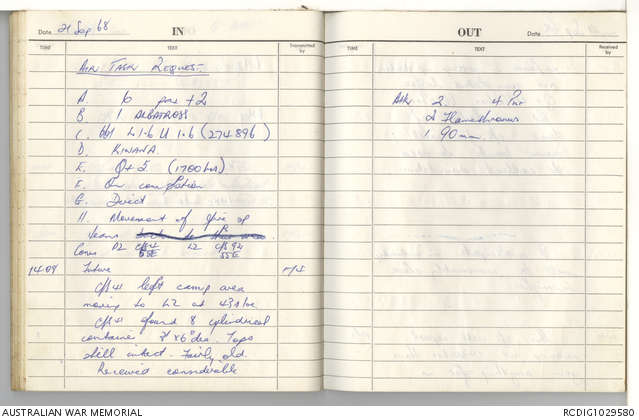 IN
Date 21 Sep 68
TIME
TEXT
Transmitted
by
AIR TASK REQUEST
A. 6 pax + 2
B. 1 ALBATROSS
C. L 1.6 U 1.6 (274896)
D. KINANA
E. Q+5 (1700 hrs)
F. On completion
G. Direct
H. Movement of
teams
D2 L2 C/S 94
1409 Future
C/S 41 left camp area
moving to L2 at
C/S 41 found 8 cylindrical
container 8" x 6" dia. Tops
still intact. Fairly old
Removed considerable
OUT
Date
TIME
TEXT
Received
by
2
2 Flamethrowers
1 90mm
AUSTRALIAN WAR MEMORIAL
RCDIG1029580